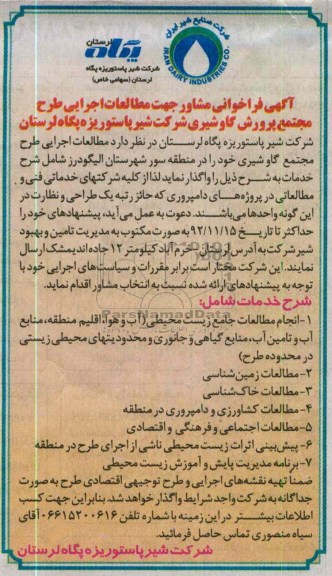 شرکت صنایع شیر ایران
IRAN DAIRY INDUSTRIES CO.
لرستان
پگاه
شرکت شیر پاستوریزه پگاه
لرستان (سهامی خاص)
آگهی فراخوانی مشاور جهت مطالعات اجرایی طرح
مجتمع پرورش گاو شیری شرکت شیر پاستوریزه پگاه لرستان
شرکت شیر پاستوریزه پگاه لرستان در نظر دارد مطالعات اجرایی طرح
مجتمع گاو شیری خود را در منطقه سور شهرستان الیگودرز شامل شرح
خدمات به شرح ذیل را واگذار نماید لذا از کلیه شرکتهای خدماتی فنی و
مطالعاتی در پروژه‌های دامپروری که حائز رتبه یک طراحی و نظارت در
این گونه واحدها می‌باشند. دعوت به عمل می‌آید، پیشنهادهای خود را
حداکثر تا تاریخ ۹۲/۱۱/۱۵ به صورت مکتوب به مدیریت تامین و بهبود
شیر شرکت به آدرس لرستان- خرم آباد کیلومتر ۱۲ جاده اندیمشک ارسال
نمایند. این شرکت مختار است برابر مقررات و سیاست‌های اجرایی خود با
توجه به پیشنهادهای ارائه شده نسبت به انتخاب مشاور اقدام نماید.
شرح خدمات شامل:
۱-انجام مطالعات جامع زیست محیطی (آب و هوا، اقلیم منطقه، منابع
آب و تامین آب، منابع گیاهی و جانوری و محدودیتهای محیطی زیستی
در محدوده طرح)
۲-مطالعات زمین‌شناسی
۳-مطالعات خاک‌شناسی
۴-مطالعات کشاورزی و دامپروری در منطقه
۵-مطالعات اجتماعی و فرهنگی و اقتصادی
۶- پیش‌بینی اثرات زیست محیطی ناشی از اجرای طرح در منطقه
۷-برنامه مدیریت پایش و آموزش زیست محیطی
ضمنا تهیه نقشه‌های اجرایی و طرح توجیهی اقتصادی طرح به صورت
جداگانه به شرکت واجد شرایط واگذار خواهد شد. بنابراین جهت کسب
اطلاعات بیشتر در این زمینه با شماره تلفن ۰۶۶۱۵۲۰۰۶۱۶ آقای
سیاه منصوری تماس حاصل فرمائید.
شرکت شیر پاستوریزه پگاه لرستان
ParsNamadData